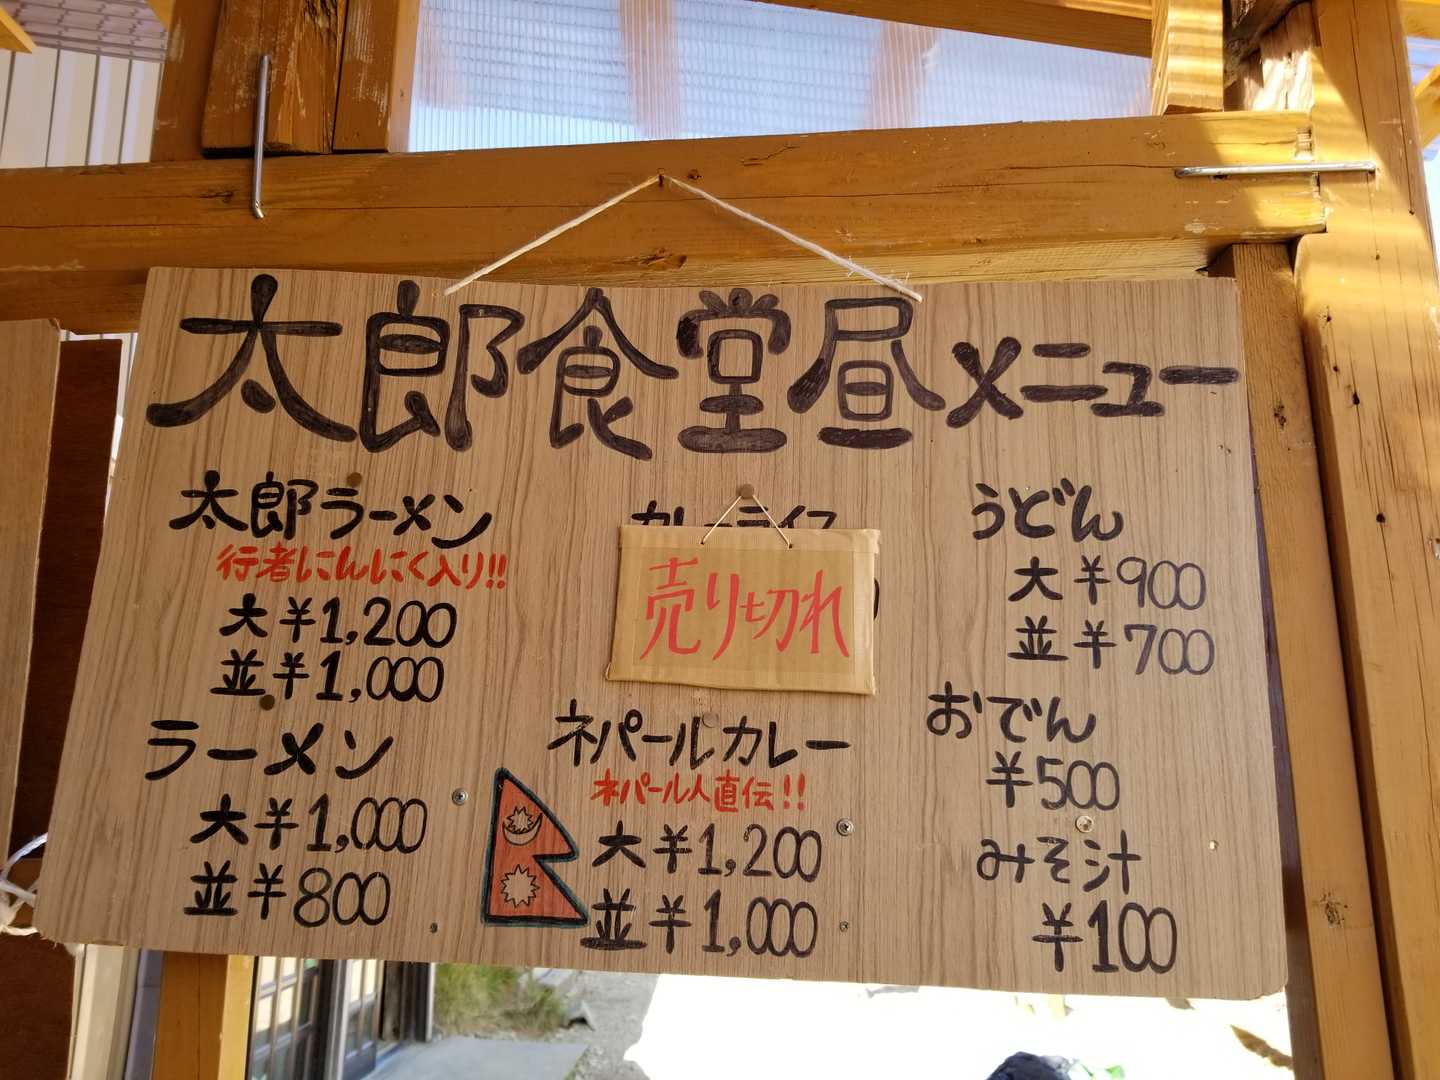 太郎食堂昼メニュー
太郎ラーメン
行者にんにく入り!!
大¥1,200
並¥1,000
ラーメン
大¥1,000
並¥800
カレーライス
売り切れ
ネパールカレー
ネパール人直伝!!
大¥1,200
並¥1,000
うどん
大¥900
並¥700
おでん
¥500
みそ汁
¥100